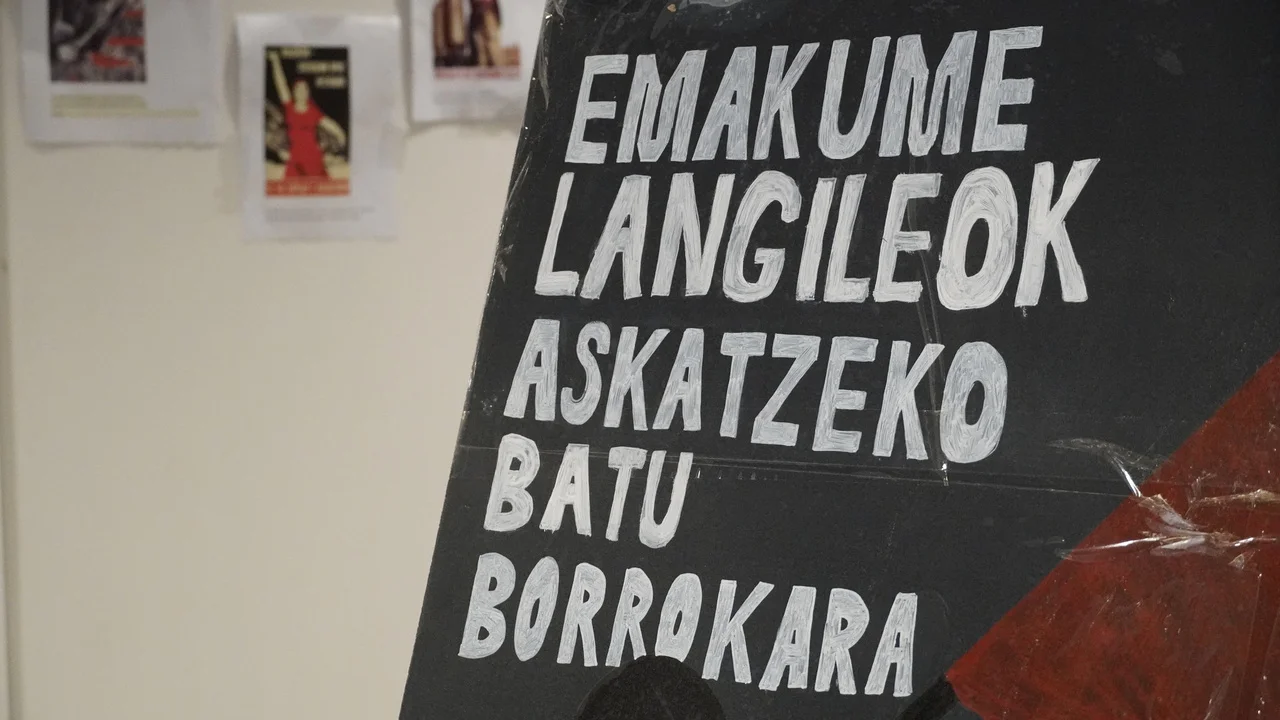 EMAKUME
LANGILEOK
ASKATZEKO
BATU
BORROKARA